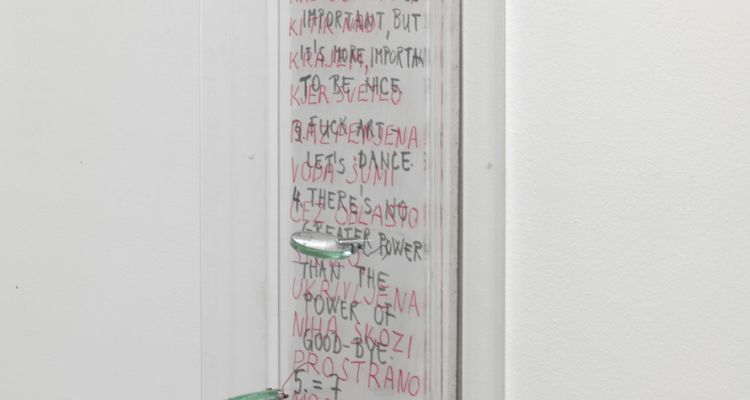 IMPORTANT, BUT
IT'S MORE IMPORTAN
TO BE NICE.
3. FUCK ART –
LET'S DANCE.
4. THERE'S NO
GREATER POWER
THAN THE
POWER OF
GOOD-BYE.
5. = 7
KI NAD
KRAJEM,
KJER SVETLO
VODA ŠUMI
ČEZ OBLASTO
UKRIVLJENA
NIHA SKOZI
PROSTRANO